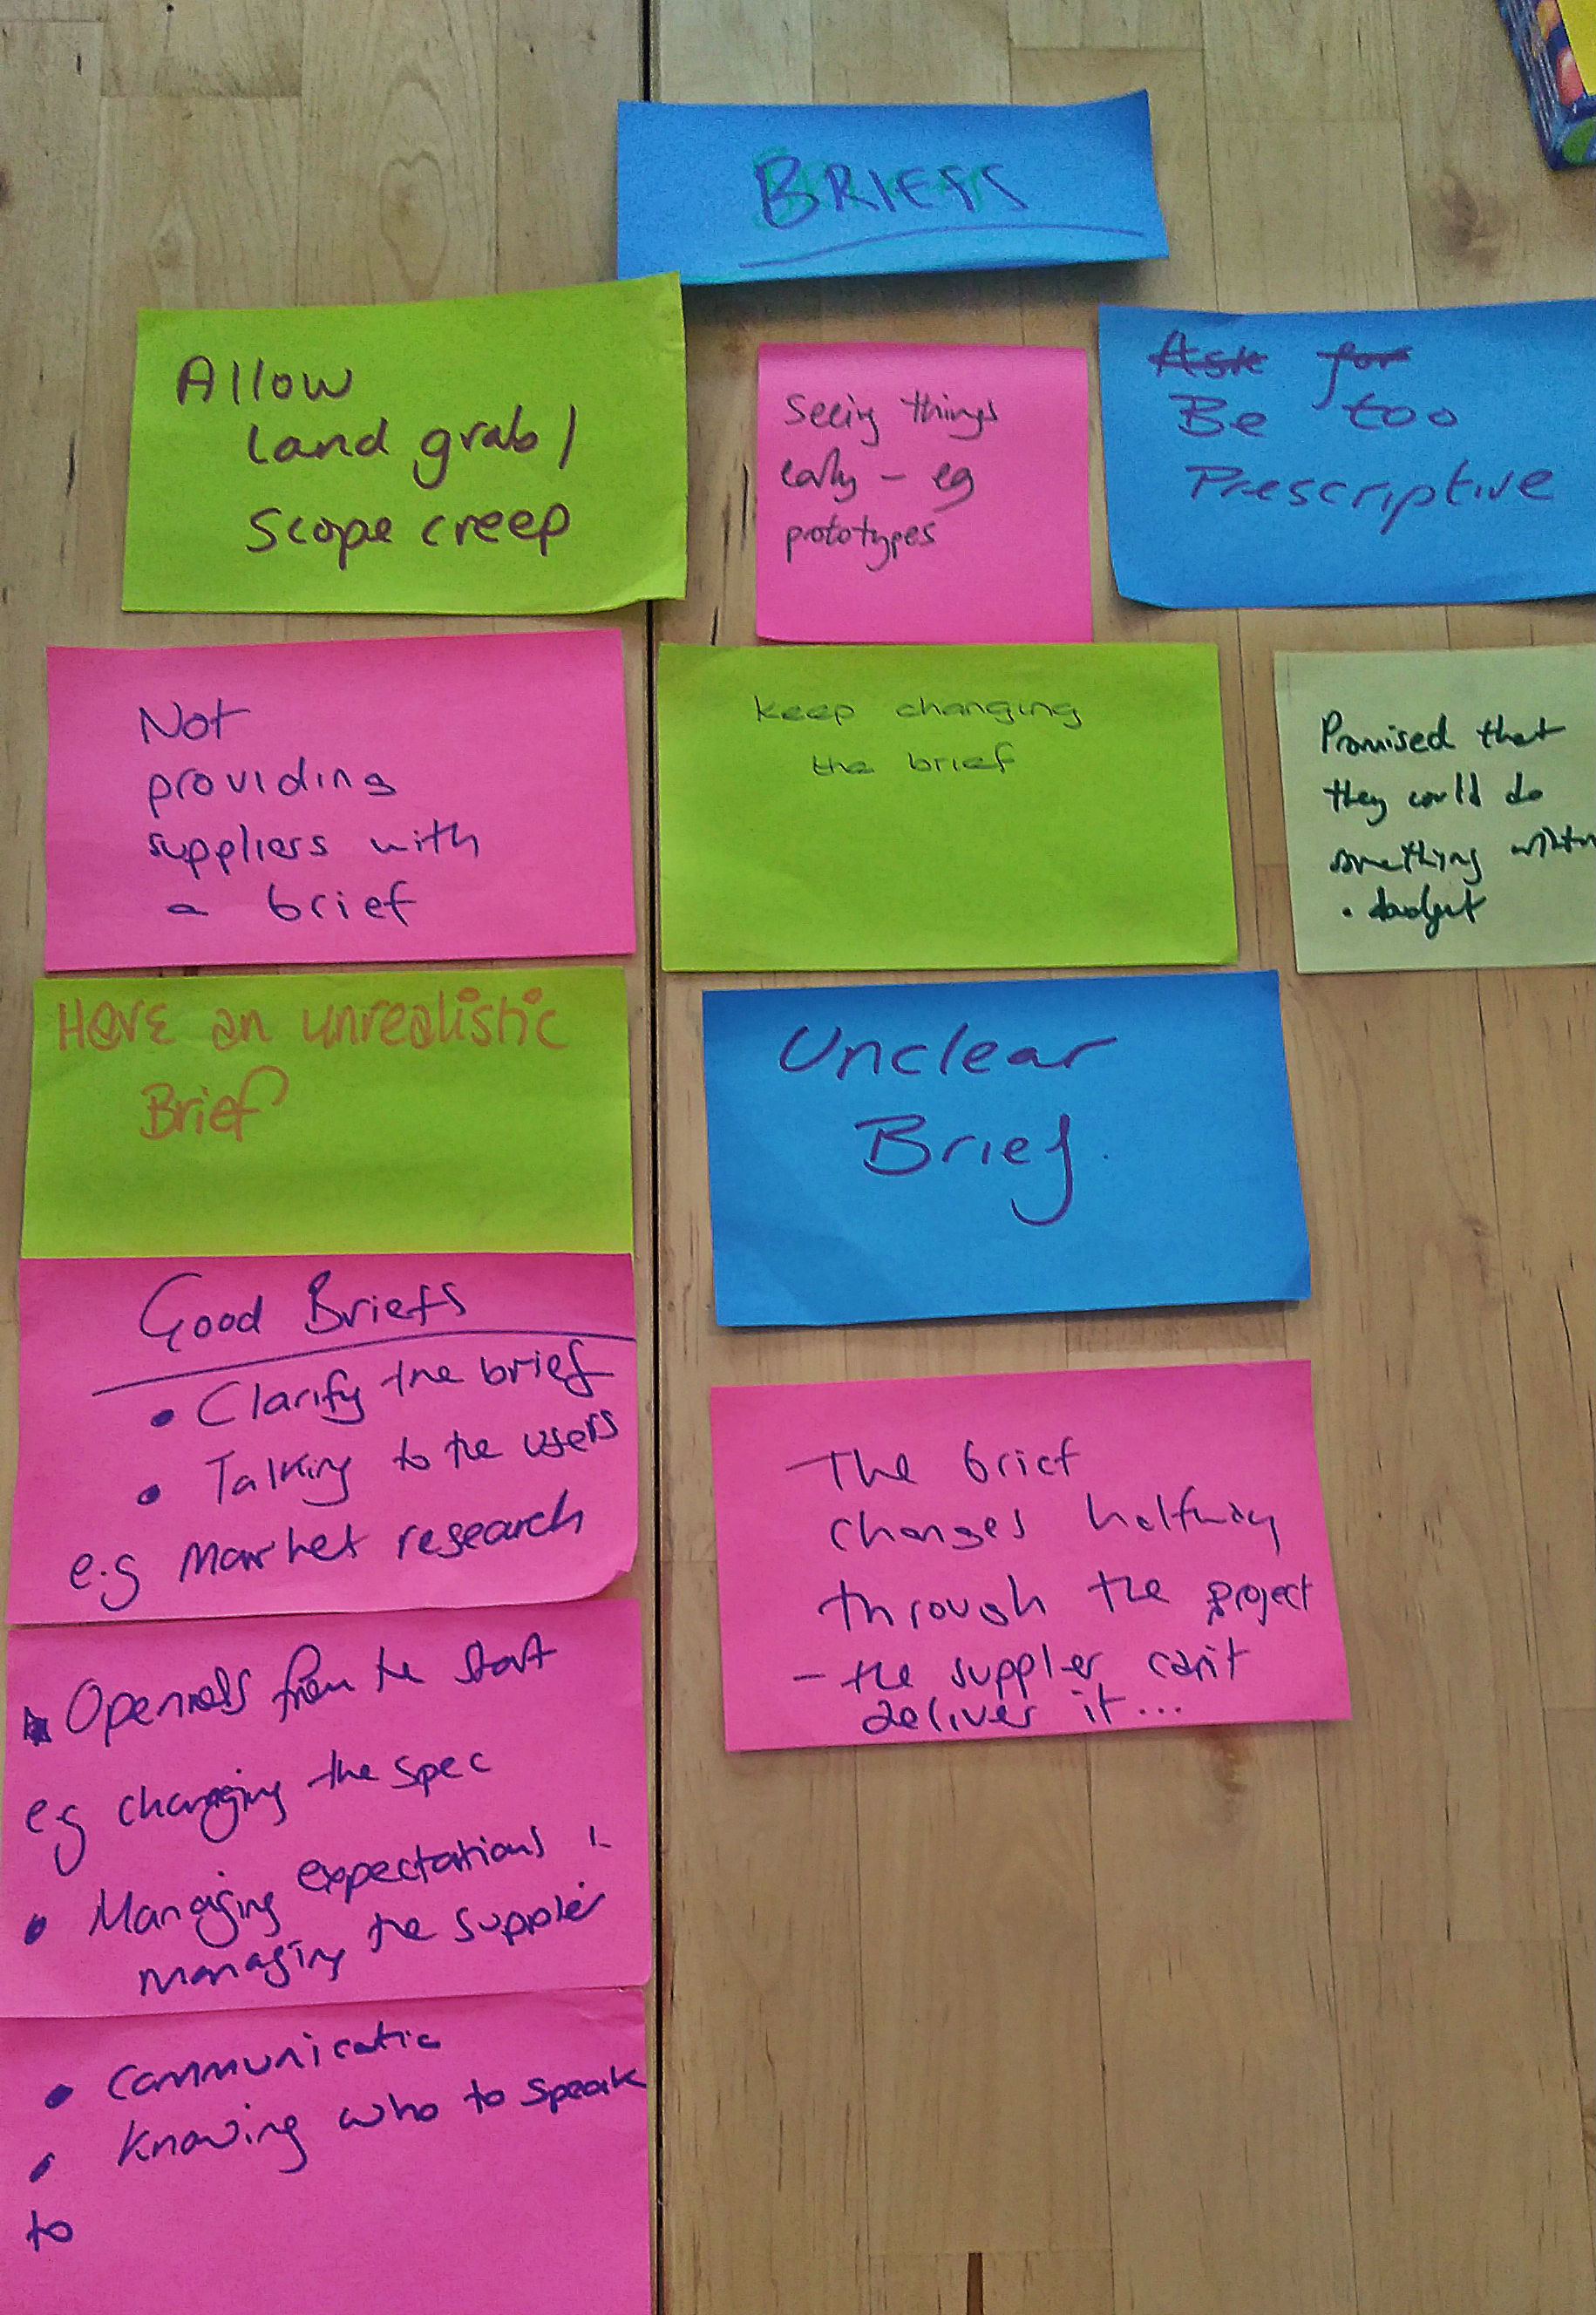 BRIEFS
Allow
land grab /
Scope creep
Seeing things
early - eg
prototypes
Ask for
Be too
Prescriptive
Not
providing
suppliers with
a brief
keep changing
the brief
Promised that
they could do
something within
budget
HAVE an unrealistic
Brief
Unclear
Brief.
Good Briefs
• Clarify the brief
• Talking to the users
e.g Market research
The brief
changes halfway
through the project
- the supplier can't
deliver it...
Openness from the start
eg changing the spec
• Managing expectations
managing the supplier
• Communicatio
• Knowing who to speak
to